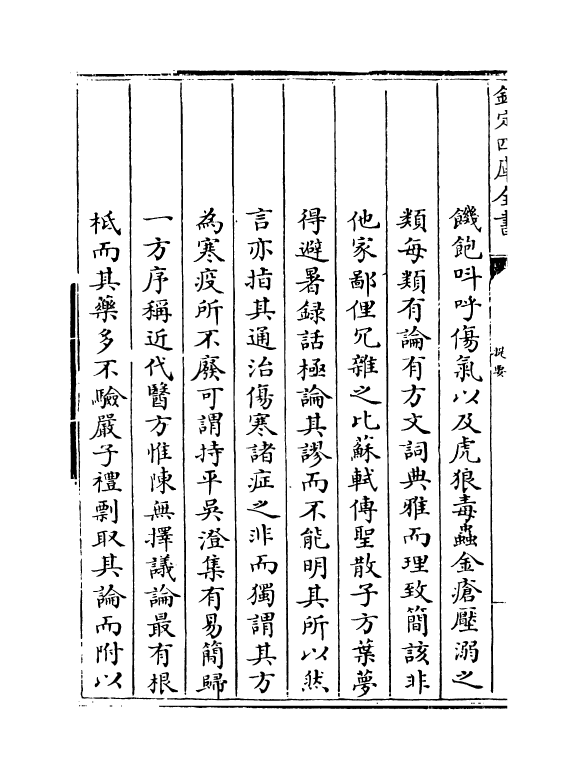 欽定四庫全書
提要
饑飽呌呼傷氣以及虎狼毒蟲金瘡壓溺之
類每類有論有方文詞典雅而理致簡該非
他家鄙俚冗雜之比蘇軾傳聖散子方葉夢
得避暑録話極論其謬而不能明其所以然
言亦指其通治傷寒諸症之非而獨謂其方
為寒疫所不廢可謂持平吳澄集有易簡歸
一方序稱近代醫方惟陳無擇議論最有根
柢而其藥多不驗嚴子禮剽取其論而附以